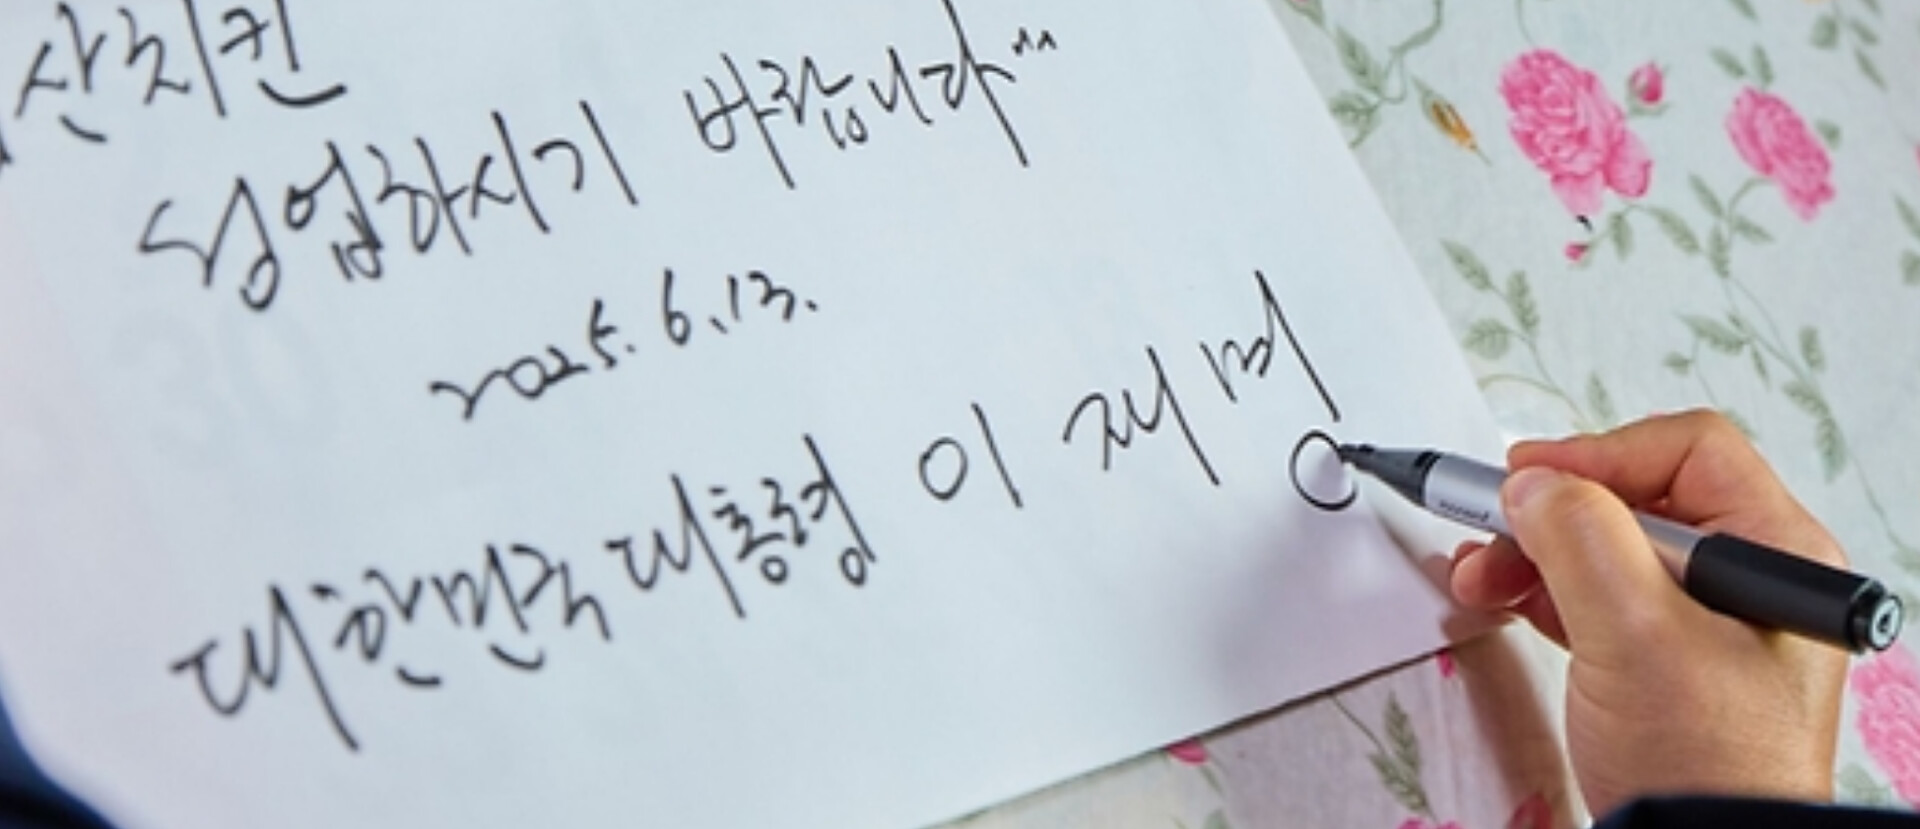 산치킨
성업하시기 바랍니다^^
2025. 6. 13.
대한민국 대통령 이 재 명